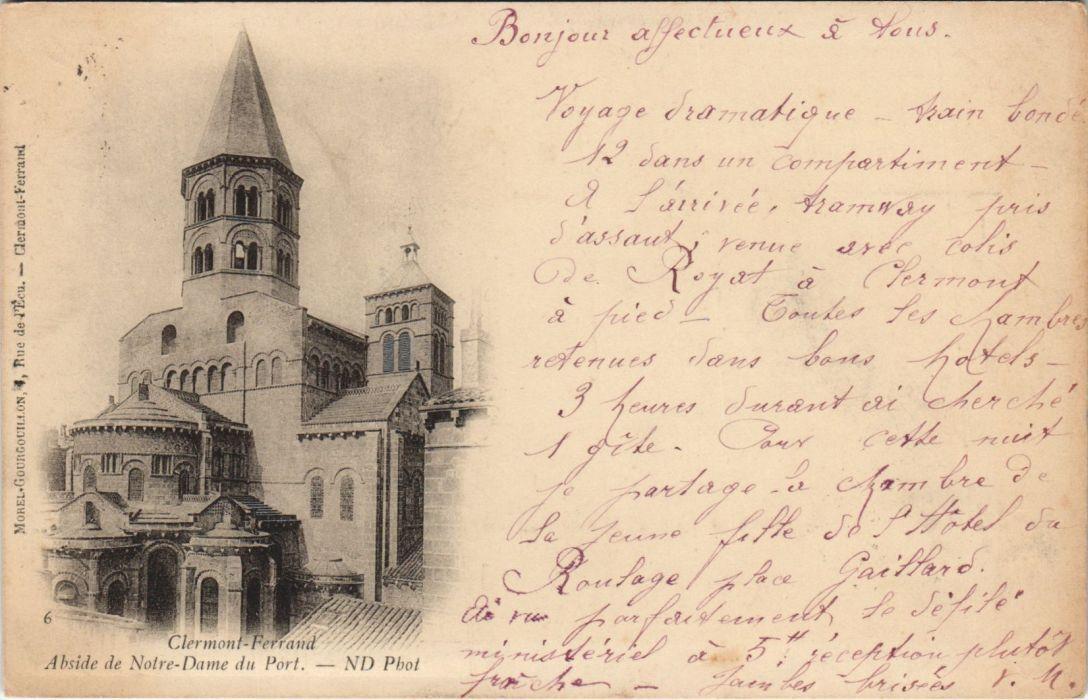 MOREL-GOURGOUILLON, 4, Rue de l'Ecu. — Clermont-Ferrand
6
Clermont-Ferrand
Abside de Notre-Dame du Port. — ND Phot
Bonjour affectueux à tous.
Voyage dramatique — train bondé
12 dans un compartiment —
A l'arrivée, tramway pris
d'assaut; venue avec colis
de Royat à Clermont
à pied — Toutes les chambres
retenues dans bons hotels —
3 heures durant ai cherché
1 gîte. Pour cette nuit
je partage la chambre de
la jeune fille de l'Hôtel du
Roulage place Gaillard.
Ai vu parfaitement le défilé
ministériel à 5 H; réception plutôt
fraîche — Jambes brisées V. M.